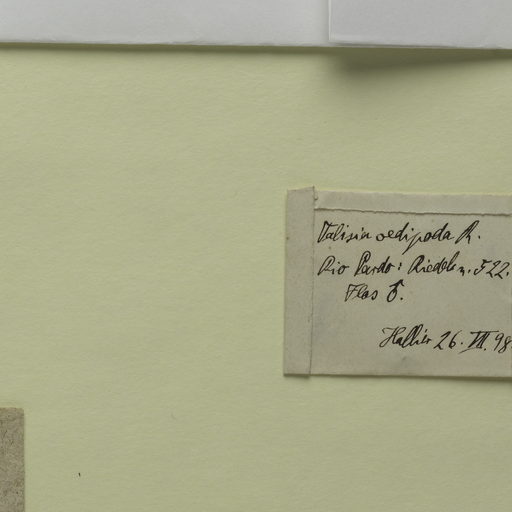 Talisia oedipoda R.
Rio Pardo: Riedel n. 522.
Flos
Hallier 26. 98